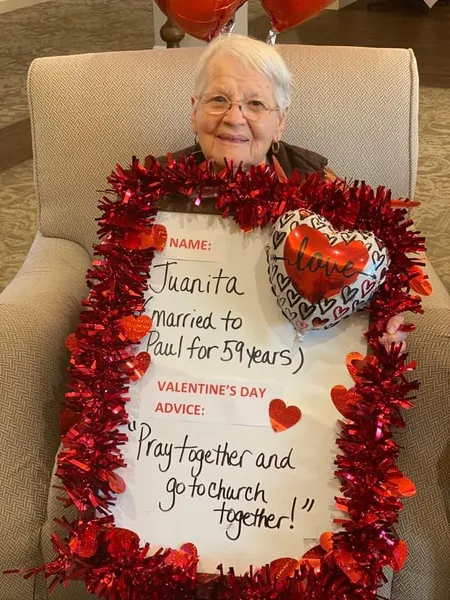 NAME:
Juanita
(married to
Paul for 59 years)
love
VALENTINE'S DAY
ADVICE:
"Pray together and
go to church
together!"